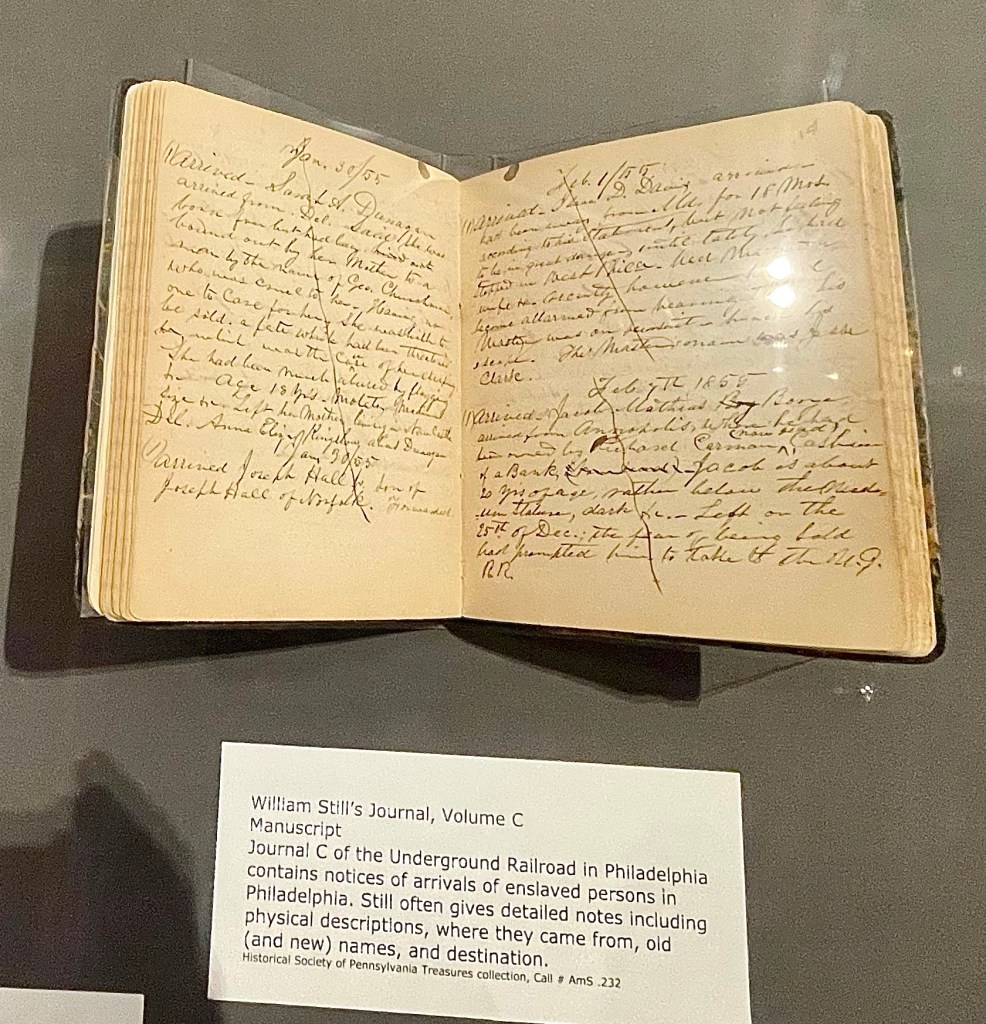 Jan. 30/55
(1) Arrived - Sarah A. Dunagan
arrived from Del. Said She was
born free but had been
bound out by her Mother to a
man by the name of Geo. Churchman
who was cruel to her. Having no
one to Care for her, She was liable to
be sold. a fate which had been threatened
She had been much abused by
Age 18 yrs. Molatto,
Size &c. Left her Mother living in
Del. Anne Eliz
Jan. 30/55
(1) Arrived Joseph Hall Jr. son of
Joseph Hall of Norfolk. Forwarded.
Feb. 1/55
(1) Arrived - D. Davis - arrived
had been away from Md. for 18 Mos.
according to his statement, but not feeling
to be in great danger
stopped in West
security however
became allarmed from hearing his
Master was on
The Master's name
Clark.
Feb. 7th 1855
(1) Arrived - Jacob Mathias Boyer
arrived from Annapolis, where he had
been owned by Richard Carman, Cashier
of a Bank, Jacob is about
20 yrs of age, rather below the Med-
ium Stature, dark &c. - Left on the
25th of Dec.; the fear of being sold
had prompted him to take to the U.G.
R.R.
William Still's Journal, Volume C
Manuscript
Journal C of the Underground Railroad in Philadelphia
contains notices of arrivals of enslaved persons in
Philadelphia. Still often gives detailed notes including
physical descriptions, where they came from, old
(and new) names, and destination.
Historical Society of Pennsylvania Treasures collection, Call # AmS .232